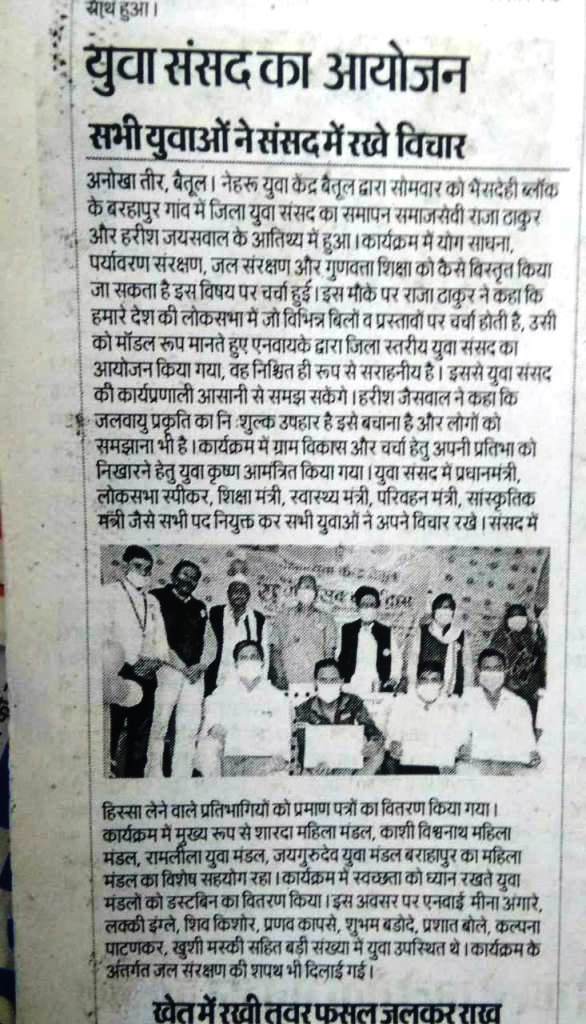 हुआ।
युवा संसद का आयोजन
सभी युवाओं ने संसद में रखे विचार
अनोखा तीर, बैतूल। नेहरू युवा केंद्र बैतूल द्वारा सोमवार को भैसदेही ब्लॉक
के बरहापुर गांव में जिला युवा संसद का समापन समाजसेवी राजा ठाकुर
और हरीश जयसवाल के आतिथ्य में हुआ। कार्यक्रम में योग साधना,
पर्यावरण संरक्षण, जल संरक्षण और गुणवत्ता शिक्षा को कैसे विस्तृत किया
जा सकता है इस विषय पर चर्चा हुई। इस मौके पर राजा ठाकुर ने कहा कि
हमारे देश की लोकसभा में जो विभिन्न बिलों व प्रस्तावों पर चर्चा होती है, उसी
को मॉडल रूप मानते हुए एनवायके द्वारा जिला स्तरीय युवा संसद का
आयोजन किया गया, वह निश्चित ही रूप से सराहनीय है। इससे युवा संसद
की कार्यप्रणाली आसानी से समझ सकेंगे। हरीश जैसवाल ने कहा कि
जलवायु प्रकृति का नि :शुल्क उपहार है इसे बचाना है और लोगों को
समझाना भी है। कार्यक्रम में ग्राम विकास और चर्चा हेतु अपनी प्रतिभा को
निखारने हेतु युवा कृष्ण आमंत्रित किया गया। युवा संसद में प्रधानमंत्री,
लोकसभा स्पीकर, शिक्षा मंत्री, स्वास्थ्य मंत्री, परिवहन मंत्री, सांस्कृतिक
मंत्री जैसे सभी पद नियुक्त कर सभी युवाओं ने अपने विचार रखे। संसद में
हिस्सा लेने वाले प्रतिभागियों को प्रमाण पत्रों का वितरण किया गया।
कार्यक्रम में मुख्य रूप से शारदा महिला मंडल, काशी विश्वनाथ महिला
मंडल, रामलीला युवा मंडल, जयगुरुदेव युवा मंडल बराहापुर का महिला
मंडल का विशेष सहयोग रहा। कार्यक्रम में स्वच्छता को ध्यान रखते युवा
मंडलों को डस्टबिन का वितरण किया। इस अवसर पर एनवाई मीना अंगारे,
लक्की इंग्ले, शिव किशोर, प्रणव कापसे, शुभम बडोदे, प्रशात बोले, कल्पना
पाटणकर, खुशी मस्की सहित बड़ी संख्या में युवा उपस्थित थे। कार्यक्रम के
अंतर्गत जल संरक्षण की शपथ भी दिलाई गई।
खेत में रखी तुवर फसल जलकर राख